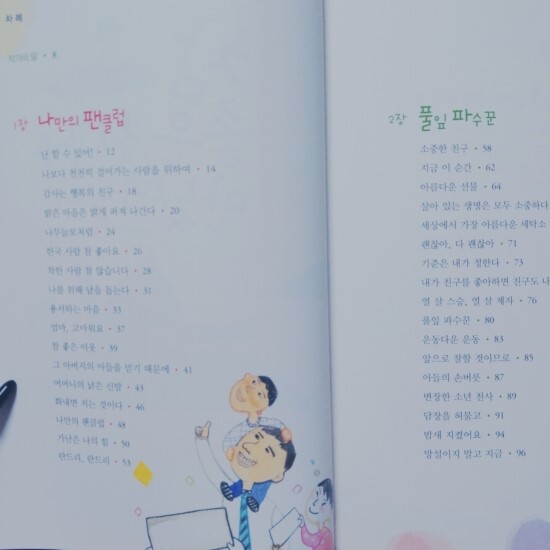 차례
작가의 말 • 8
1장 나만의 팬클럽
난 할 수 있어! • 12
나보다 천천히 걸어가는 사람을 위하여 • 14
감사는 행복의 친구 • 18
밝은 마음은 밝게 퍼져 나간다 • 20
나무늘보처럼 • 24
한국 사람 참 좋아요 • 26
착한 사람 참 많습니다 • 28
나를 위해 남을 돕는다 • 31
용서하는 마음 • 33
엄마, 고마워요 • 37
참 좋은 이웃 • 39
그 아버지의 아들을 믿기 때문에 • 41
어머니의 낡은 신발 • 43
화내면 지는 것이다 • 46
나만의 팬클럽 • 48
가난은 나의 힘 • 50
란드리, 란드리 • 53
2장 풀잎 파수꾼
소중한 친구 • 58
지금 이 순간 • 62
아름다운 선물 • 64
살아 있는 생명은 모두 소중하다
세상에서 가장 아름다운 세탁소
괜찮아, 다 괜찮아 • 71
기준은 내가 정한다 • 73
내가 친구를 좋아하면 친구도 나
열 살 스승, 열 살 제자 • 76
풀잎 파수꾼 • 80
운동다운 운동 • 83
앞으로 잘할 것이므로 • 85
아들의 손버릇 • 87
변장한 소년 천사 • 89
담장을 허물고 • 91
밤새 지켰어요 • 94
망설이지 말고 지금 • 96